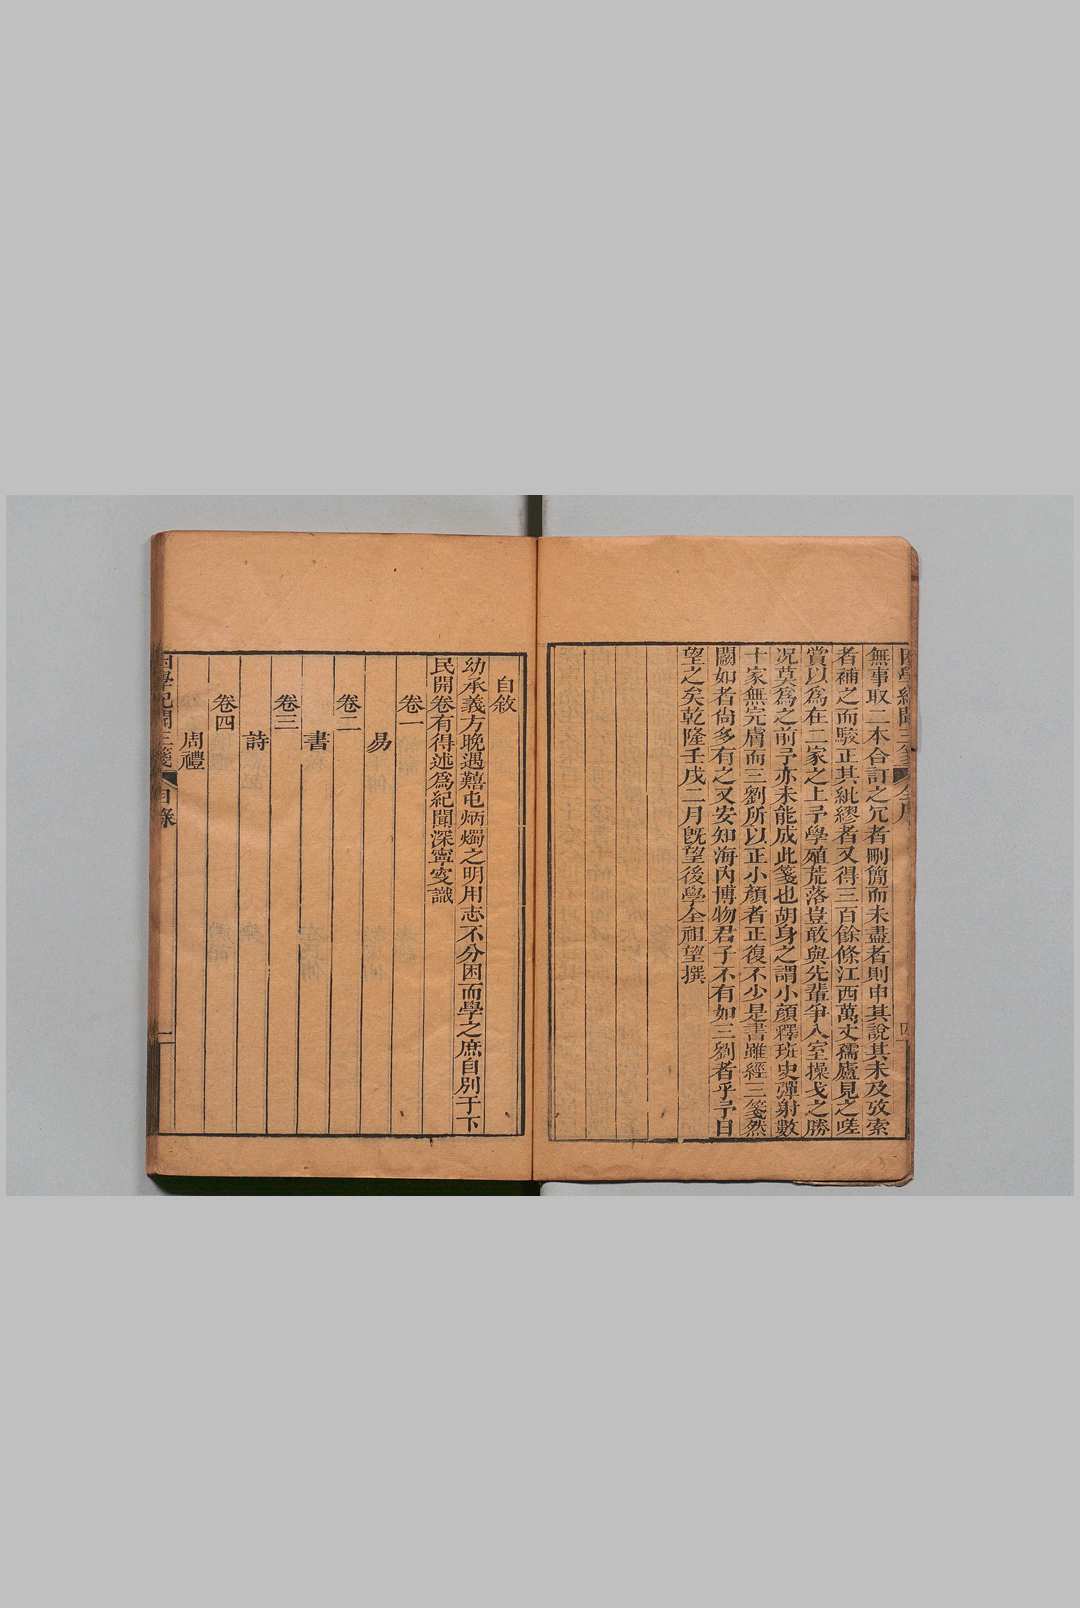 無事取二本合訂之冗者刪簡而未盡者則申其說其未及攷索
者補之而駁正其紕繆者又得三百餘條江西萬丈孺廬見之嗟
賞以爲在二家之上予學殖荒落豈敢與先輩爭入室操戈之勝
况莫爲之前予亦未能成此箋也胡身之謂小顏釋班史彈射數
十家無完膚而三劉所以正小顏者正復不少是書雖經三箋然
闕如者尙多有之又安知海內博物君子不有如三劉者乎予日
望之矣乾隆壬戌二月旣望後學全祖望撰
四
自敘
幼承義方晚遇囏屯炳燭之明用志不分困而學之庶自別于下
民開卷有得述爲紀聞深寧叟識
卷一
易
卷二
書
卷三
詩
卷四
周禮
困學紀聞三箋
目錄
一